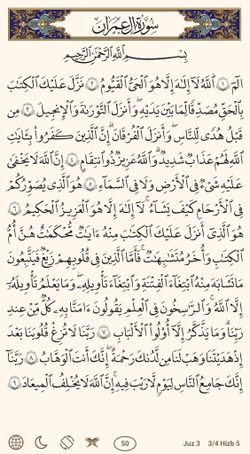 سُورَةُ آلِ عِمْرَانَ
بِسْمِ ٱللَّهِ ٱلرَّحْمَٰنِ ٱلرَّحِيمِ
الٓمٓ ١ ٱللَّهُ لَآ إِلَٰهَ إِلَّا هُوَ ٱلْحَىُّ ٱلْقَيُّومُ ٢ نَزَّلَ عَلَيْكَ ٱلْكِتَٰبَ
بِٱلْحَقِّ مُصَدِّقًا لِّمَا بَيْنَ يَدَيْهِ وَأَنزَلَ ٱلتَّوْرَىٰةَ وَٱلْإِنجِيلَ ٣ مِن
قَبْلُ هُدًى لِّلنَّاسِ وَأَنزَلَ ٱلْفُرْقَانَ إِنَّ ٱلَّذِينَ كَفَرُوا۟ بِـَٔايَٰتِ
ٱللَّهِ لَهُمْ عَذَابٌ شَدِيدٌ وَٱللَّهُ عَزِيزٌ ذُو ٱنتِقَامٍ ٤ إِنَّ ٱللَّهَ لَا يَخْفَىٰ
عَلَيْهِ شَىْءٌ فِى ٱلْأَرْضِ وَلَا فِى ٱلسَّمَآءِ ٥ هُوَ ٱلَّذِى يُصَوِّرُكُمْ
فِى ٱلْأَرْحَامِ كَيْفَ يَشَآءُ لَآ إِلَٰهَ إِلَّا هُوَ ٱلْعَزِيزُ ٱلْحَكِيمُ ٦
هُوَ ٱلَّذِىٓ أَنزَلَ عَلَيْكَ ٱلْكِتَٰبَ مِنْهُ ءَايَٰتٌ مُّحْكَمَٰتٌ هُنَّ أُمُّ
ٱلْكِتَٰبِ وَأُخَرُ مُتَشَٰبِهَٰتٌ فَأَمَّا ٱلَّذِينَ فِى قُلُوبِهِمْ زَيْغٌ فَيَتَّبِعُونَ
مَا تَشَٰبَهَ مِنْهُ ٱبْتِغَآءَ ٱلْفِتْنَةِ وَٱبْتِغَآءَ تَأْوِيلِهِۦ وَمَا يَعْلَمُ تَأْوِيلَهُۥٓ
إِلَّا ٱللَّهُ وَٱلرَّٰسِخُونَ فِى ٱلْعِلْمِ يَقُولُونَ ءَامَنَّا بِهِۦ كُلٌّ مِّنْ عِندِ
رَبِّنَا وَمَا يَذَّكَّرُ إِلَّآ أُو۟لُوا۟ ٱلْأَلْبَٰبِ ٧ رَبَّنَا لَا تُزِغْ قُلُوبَنَا بَعْدَ
إِذْ هَدَيْتَنَا وَهَبْ لَنَا مِن لَّدُنكَ رَحْمَةً إِنَّكَ أَنتَ ٱلْوَهَّابُ ٨ رَبَّنَآ
إِنَّكَ جَامِعُ ٱلنَّاسِ لِيَوْمٍ لَّا رَيْبَ فِيهِ إِنَّ ٱللَّهَ لَا يُخْلِفُ ٱلْمِيعَادَ ٩
50 Juz 3 3/4 Hizb 5